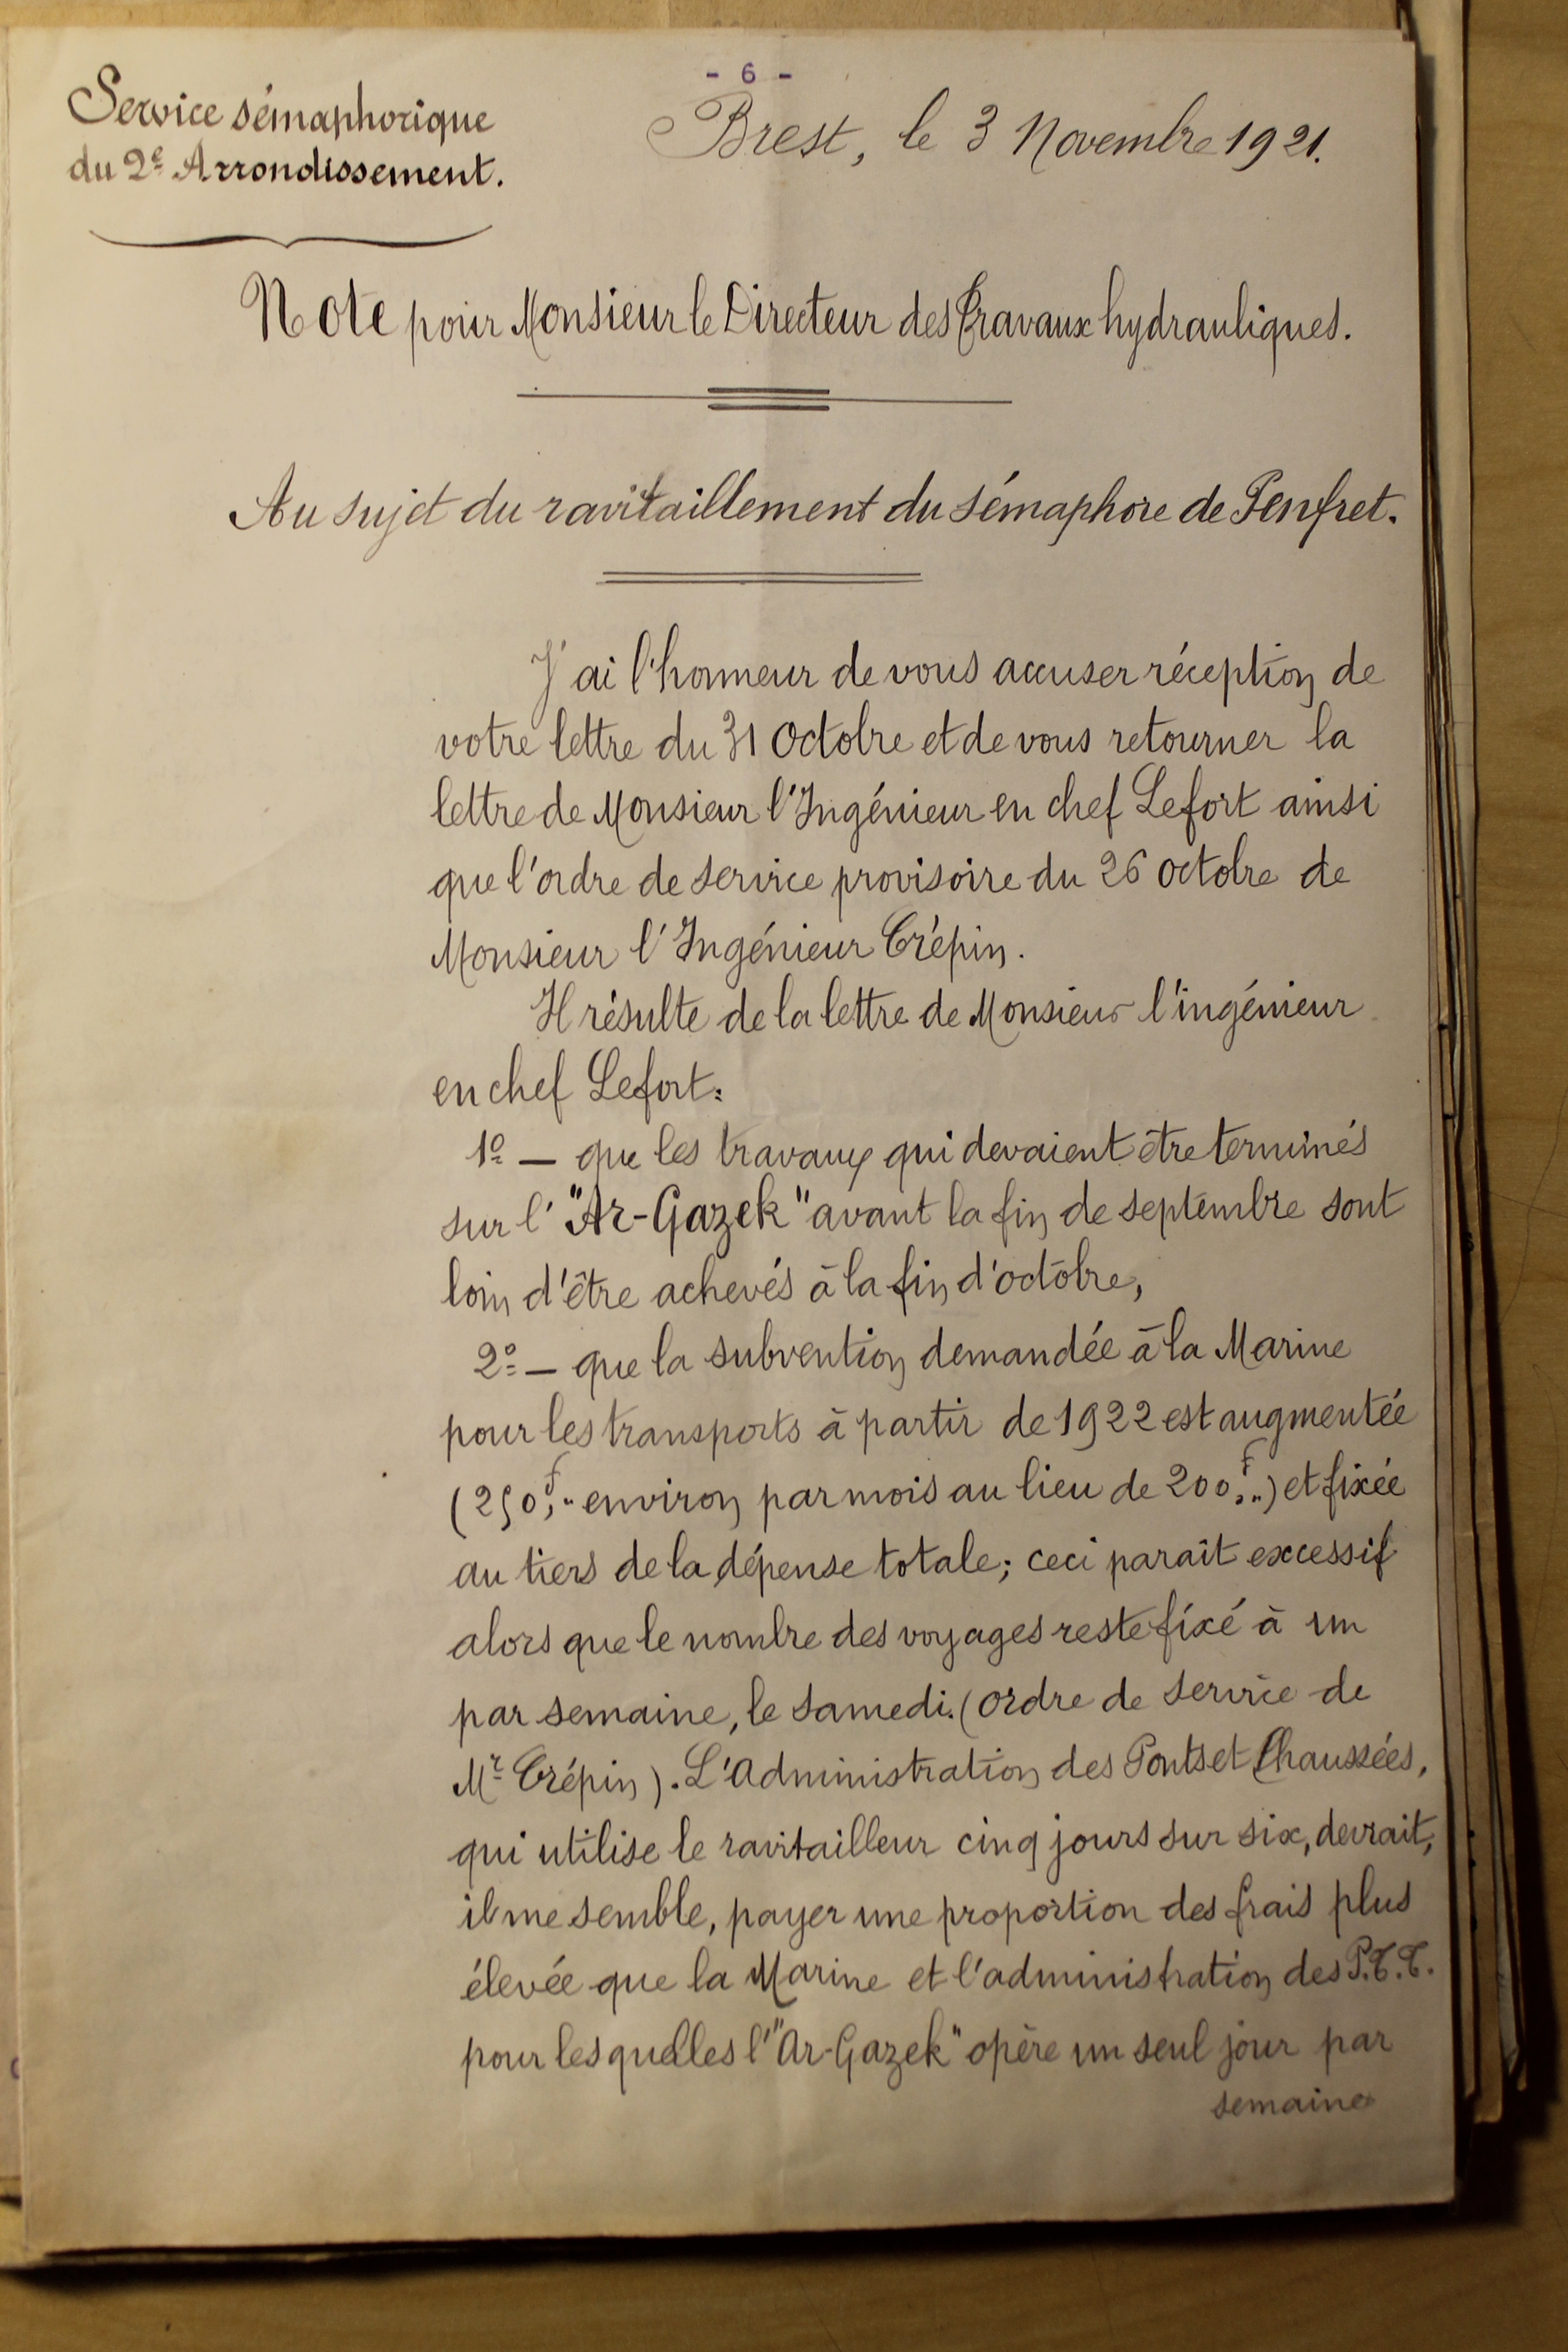 - 6 -
Service sémaphorique
du 2e Arrondissement.
Brest, le 3 Novembre 1921.
Note pour Monsieur le Directeur des Travaux hydrauliques.
Au sujet du ravitaillement du sémaphore de Penfret.
J'ai l'honneur de vous accuser réception de
votre lettre du 31 Octobre et de vous retourner la
lettre de Monsieur l'Ingénieur en chef Lefort ainsi
que l'ordre de service provisoire du 26 octobre de
Monsieur l'Ingénieur Crépin.
Il résulte de la lettre de Monsieur l'ingénieur
en chef Lefort:
1º — que les travaux qui devaient être terminés
sur l'"Ar-Gazek" avant la fin de septembre sont
loin d'être achevés à la fin d'octobre,
2º — que la subvention demandée à la Marine
pour les transports à partir de 1922 est augmentée
(250f," environ par mois au lieu de 200f,") et fixée
au tiers de la dépense totale; ceci paraît excessif
alors que le nombre des voyages reste fixé à un
par semaine, le samedi. (ordre de service de
Mr Crépin). L'Administration des Ponts et Chaussées,
qui utilise le ravitailleur cinq jours sur six, devrait,
il me semble, payer une proportion des frais plus
élevée que la Marine et l'administration des P.T.T.
pour lesquelles l'"Ar-Gazek" opère un seul jour par
semaine